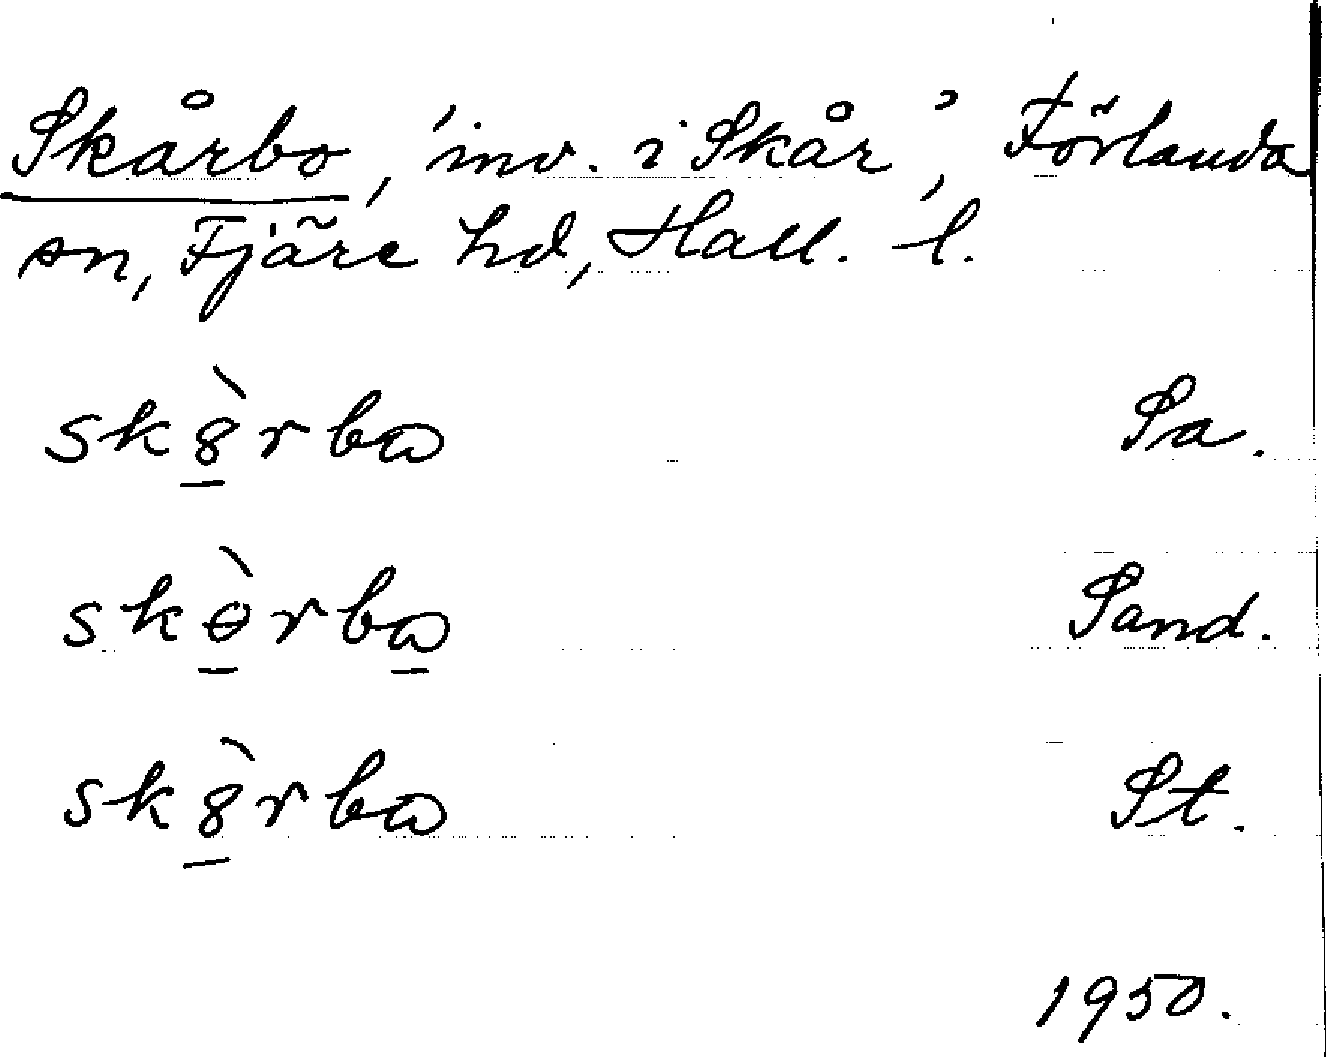 Skårbo, 'inv. i Skår', Förlanda
sn, Fjäre hd, Hall. l.
sk8̠̀rbɷ Sa.
skɵ̠̀rbɷ̠ Sand.
sk8̠̀rbɷ St.
1950.